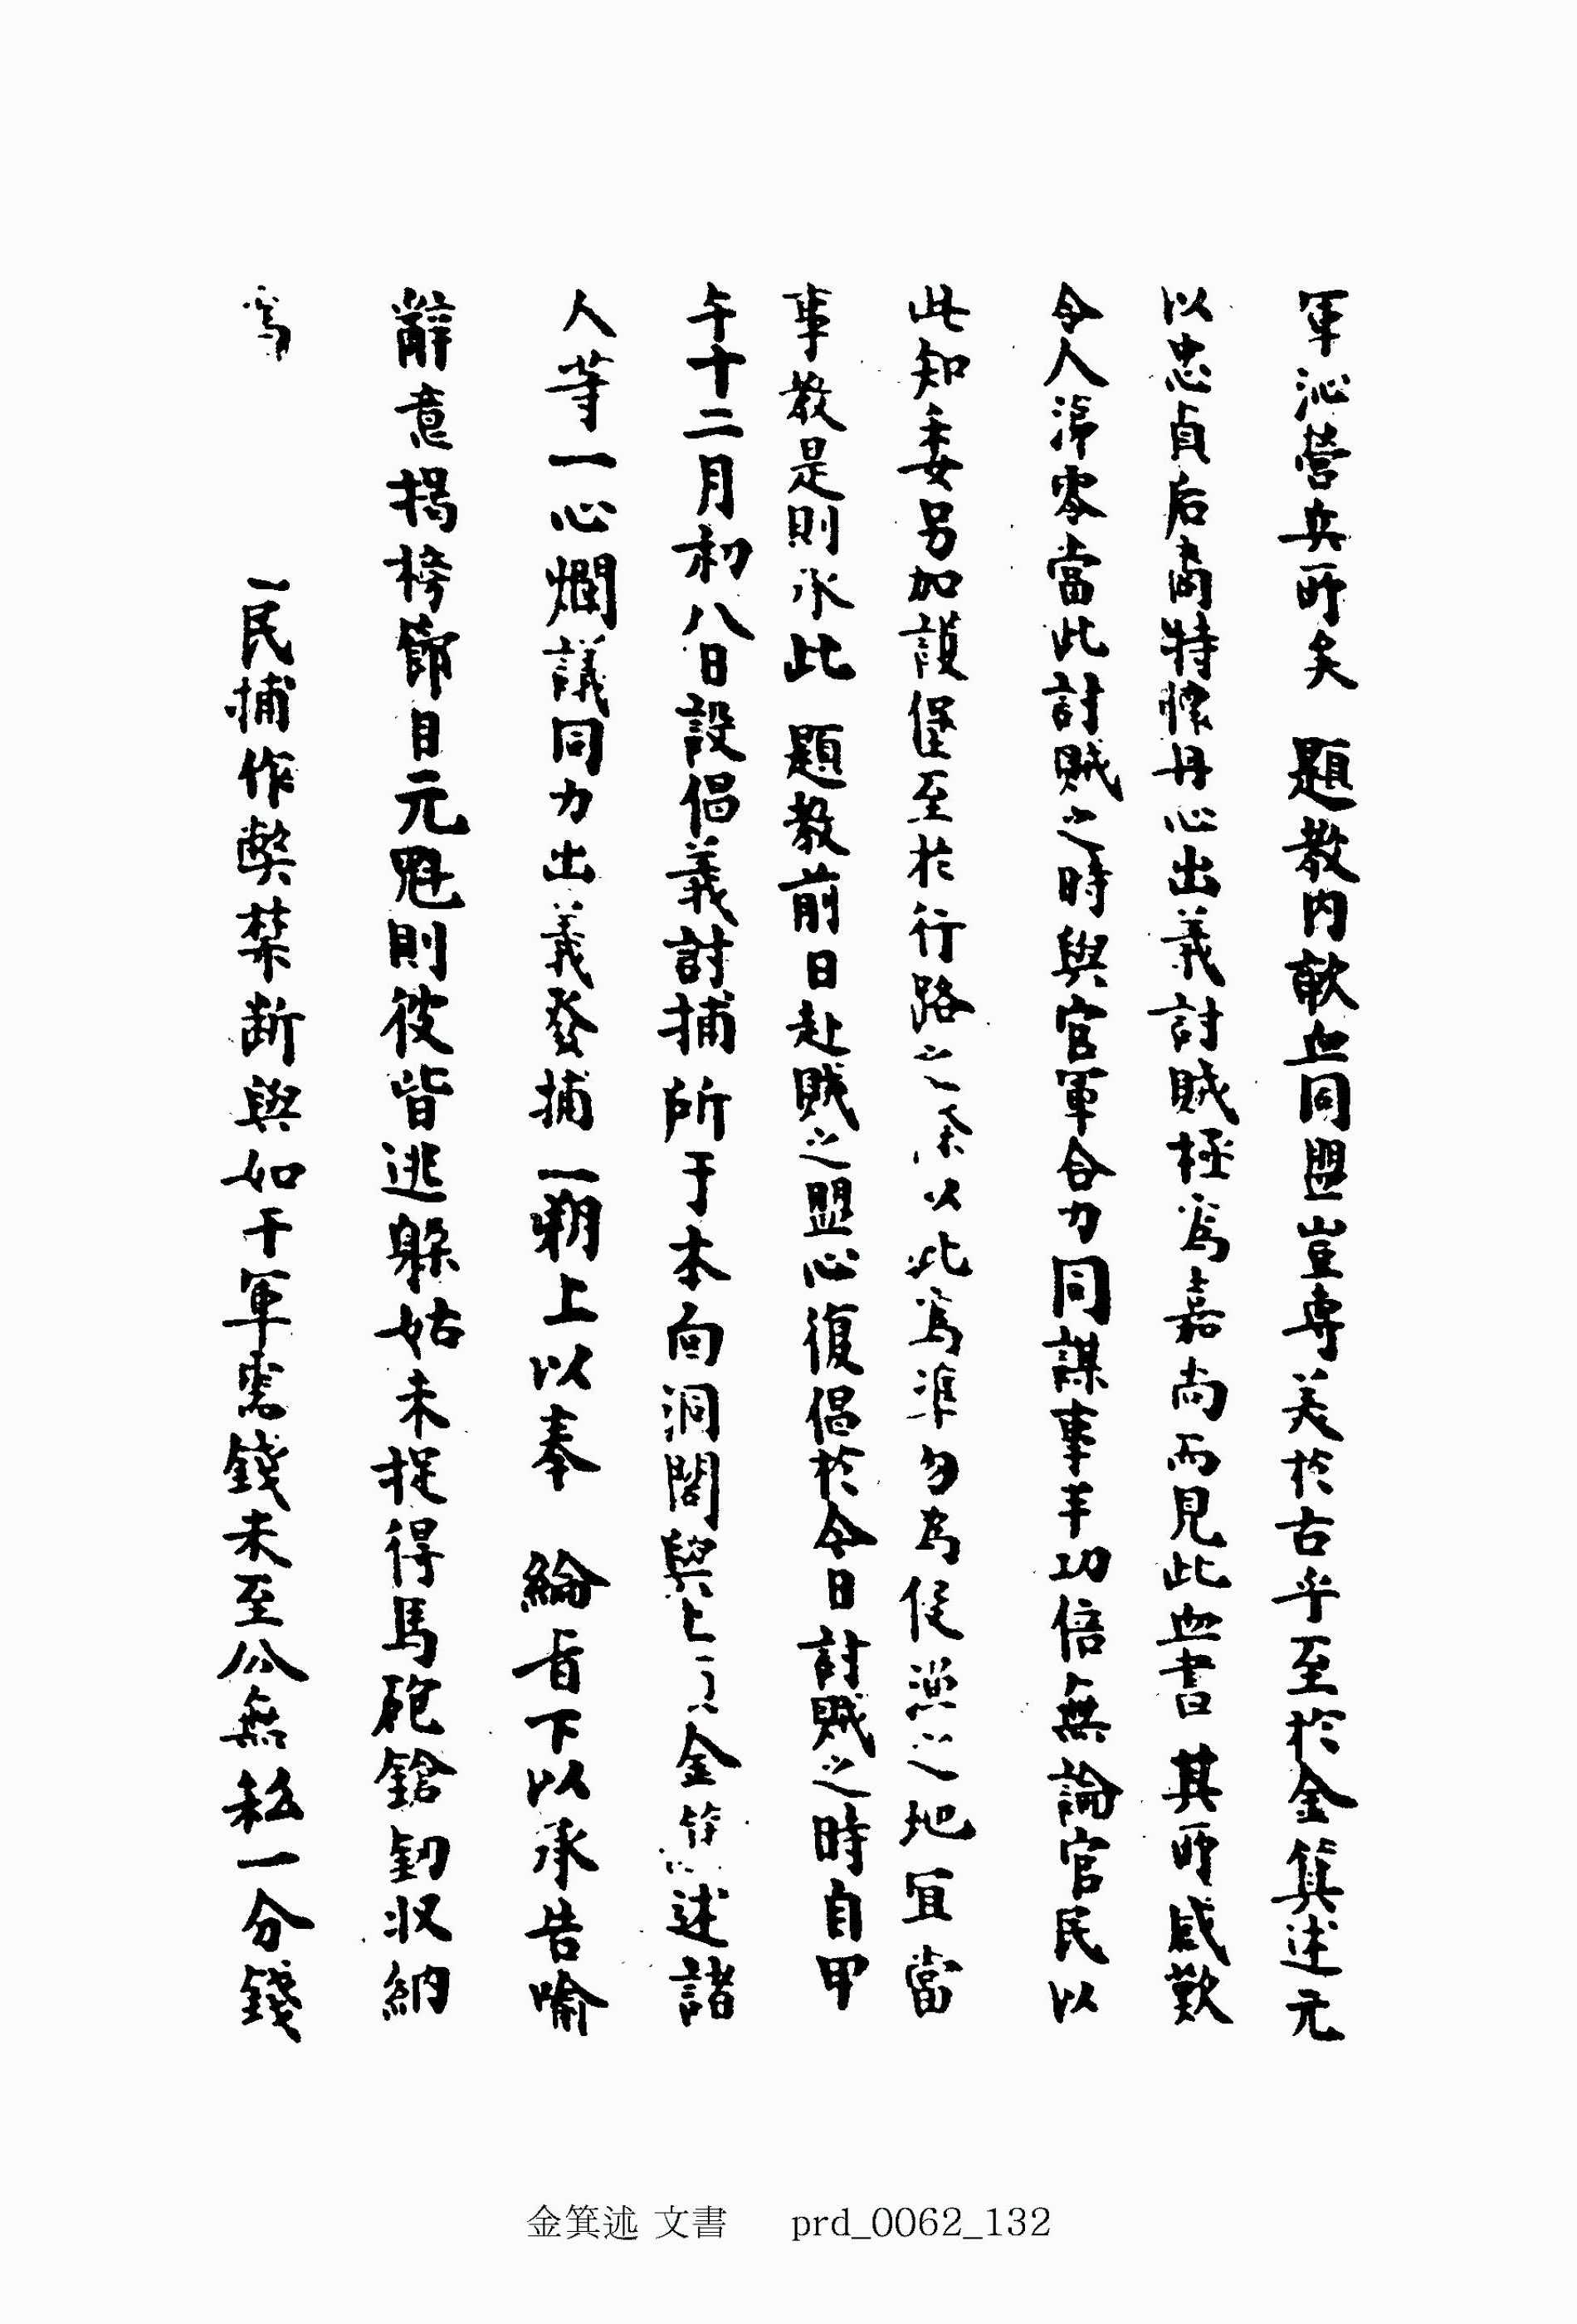 軍沁營兵所矣 題教内歃血同盟豈專美於古乎至於金箕述元
以忠貞后裔特懷丹心出義討賊極爲嘉尚而見此血書 其所感歎
令人涕零當此討賊之時與官軍合力同謀事半功倍無論官民以
此知委另加護堡至於行路之 以此爲準勿爲侵漁之地宜當
事教是則承此 題教前日赴賊之盟心復倡於今日討賊之時自甲
午十二月初八日設倡義討捕所于本面洞閣與 金箕述諸
人等一心爛議同力出義發捕一朔上以奉 綸旨下以承告喻
辭意揭榜節目元魁則彼皆逃躲姑未捉得馬砲鎗釖収納
爲
一民捕作弊禁断與如干軍需錢未至公無私一分錢
金箕述 文書 prd_0062_132